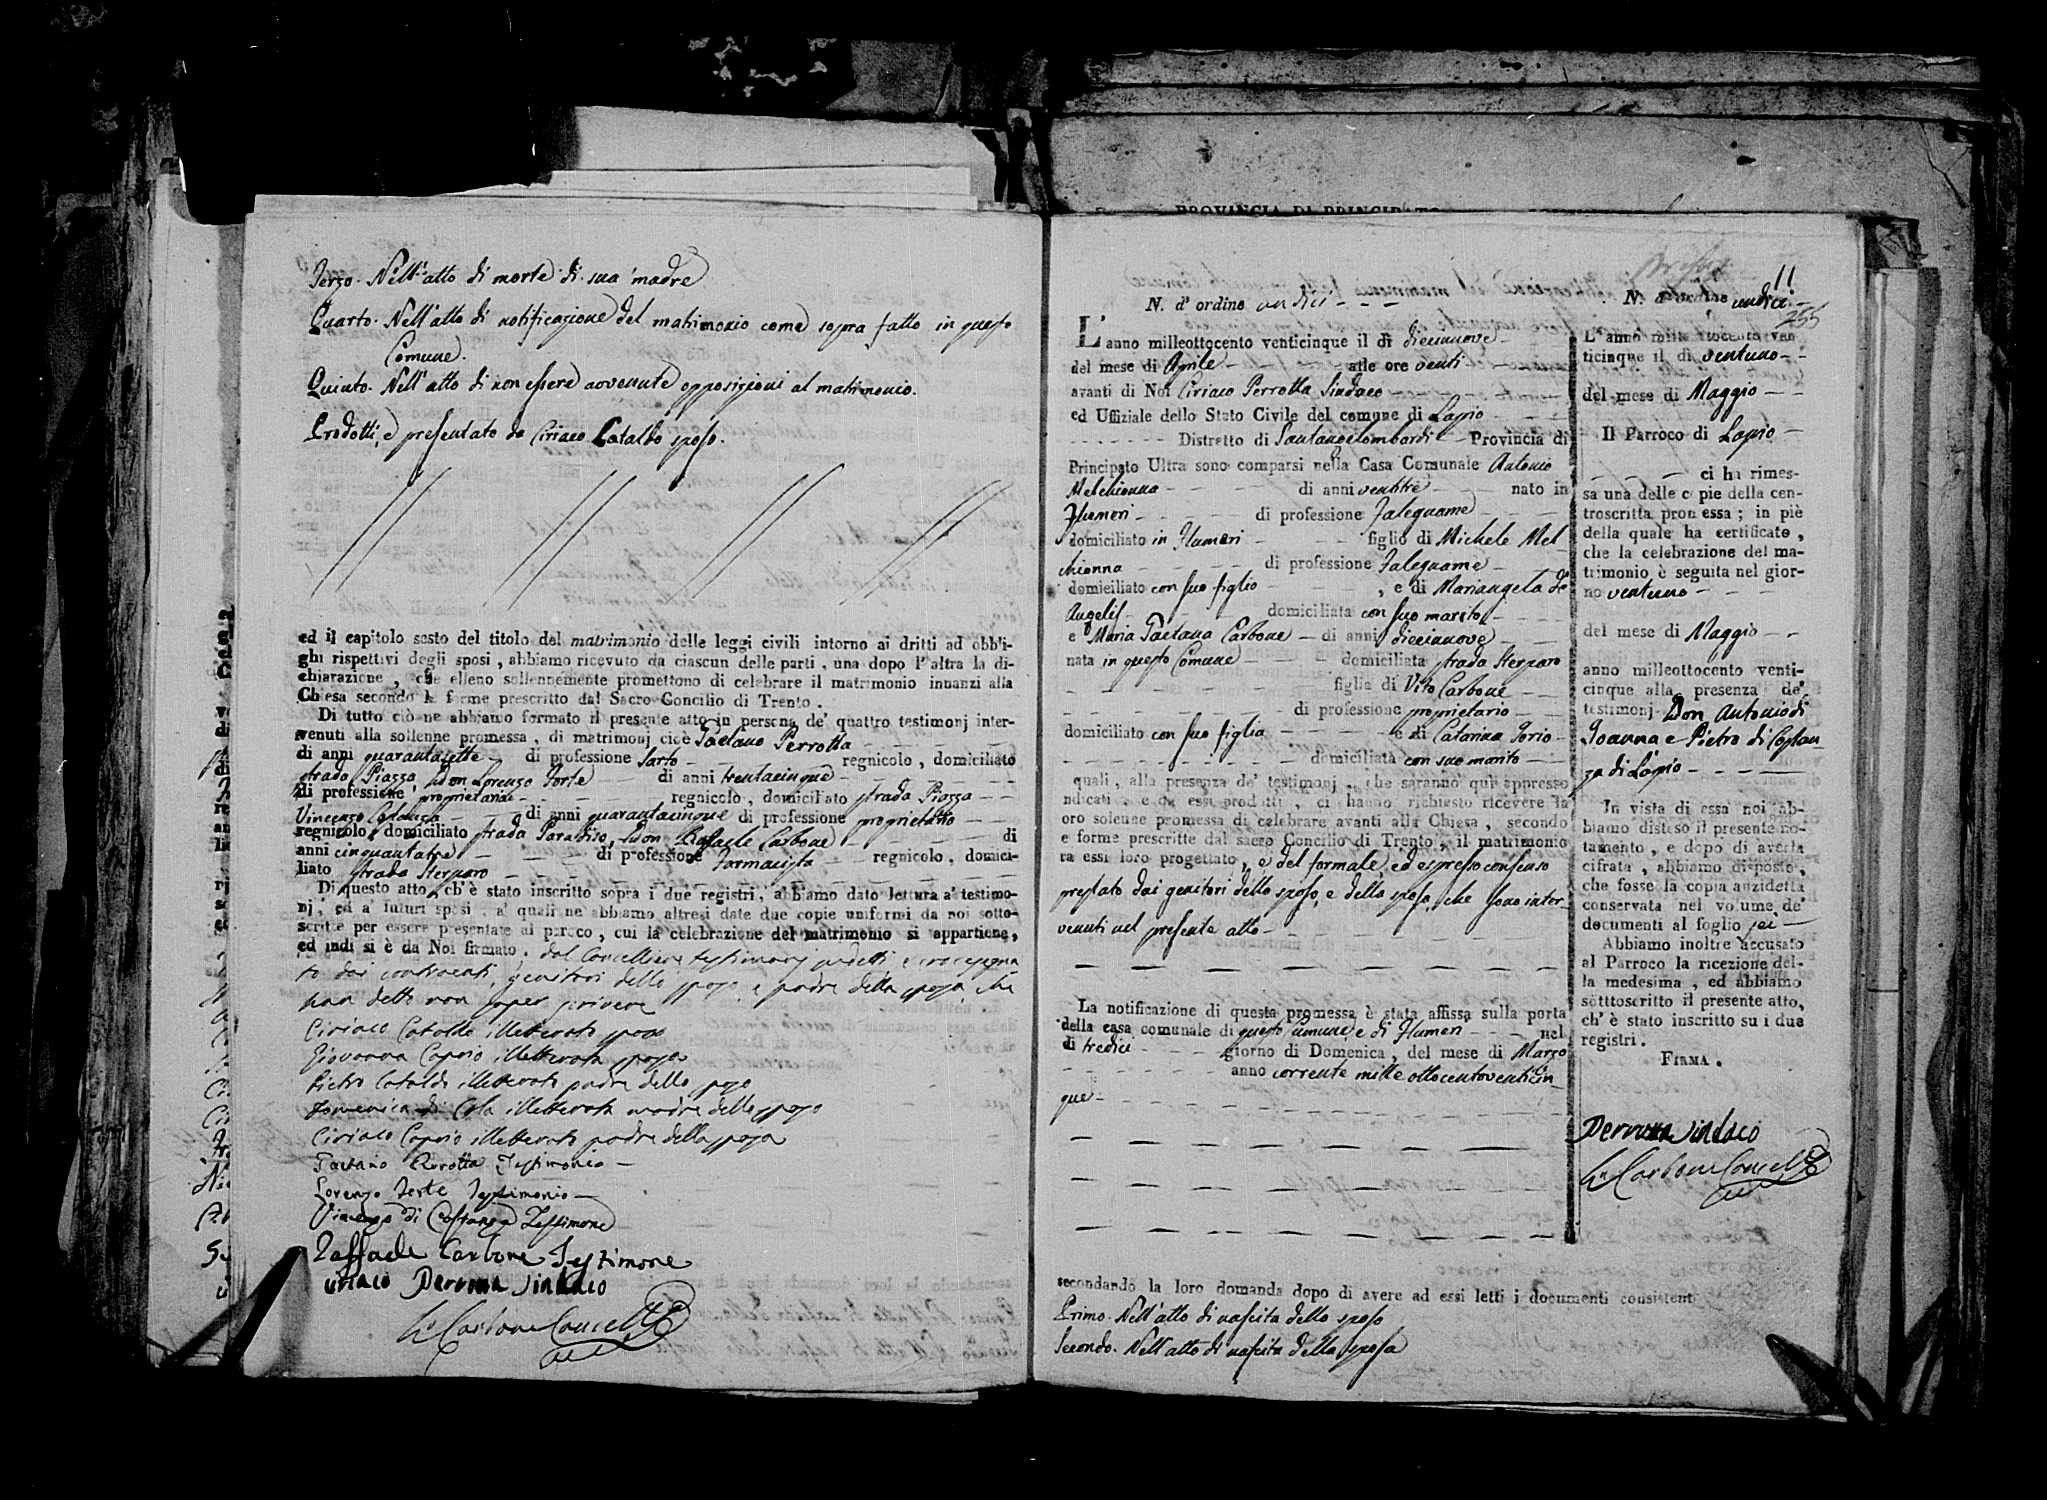 Terzo. Nell'atto di morte di sua madre
Quarto. Nell'atto di notificazione del matrimonio come sopra fatto in questo
Comune.
Quinto. Nell'atto di non essere avvenute opposizioni al matrimonio.
Prodotti, e presentato da Ciriaco Cataldo sposo.
ed il capitolo sesto del titolo del matrimonio delle leggi civili intorno ai dritti ad obbli-
ghi rispettivi degli sposi, abbiamo ricevuto da ciascun delle parti, una dopo l'altra la di-
chiarazione, che elleno sollennemente promettono di celebrare il matrimonio innanzi alla
Chiesa secondo le forme prescritto dal Sacro Concilio di Trento.
Di tutto ciò ne abbiamo formato il presente atto in persona de' quattro testimonj inter-
venuti alla sollenne promessa, di matrimonj cioè Gaetano Perrotta
di anni quarantasette di professione Sarto regnicolo, domiciliato
strada Piazza, Don Lorenzo Forte di anni trentacinque
di professione proprietario regnicolo, domiciliato strada Piazza
Vincenzo di anni quarantacinque di professione proprietario
regnicolo domiciliato strada Paradiso, Don Raffaele Carbone di
anni cinquantatre di professione Farmacista regnicolo, domici-
liato strada Sterparo
Di questo atto, ch'è stato inscritto sopra i due registri, abbiamo dato lettura a' testimo-
nj, ed a' futuri sposi, a' quali ne abbiamo altresì date due copie uniformi da noi sotto-
scritte per essere presentate al parroco, cui la celebrazione del matrimonio si appartiene,
ed indi si è da Noi firmato, dal Cancelliere testimonj
genitori dello sposo, e padre della sposa, che
han detto non saper scrivere
Ciriaco Cataldo illetterato sposo
Giovanna Caprio illetterata sposa
Pietro Cataldo illetterato padre dello sposo
Domenica di Cola illetterata madre dello sposo
Ciriaco Caprio illetterato padre della sposa
Gaetano Perrotta Testimonio
Lorenzo Forte Testimonio
Vincenzo di Costanza Testimone
Raffaele Carbone Testimone
Ciriaco Perrotta Sindaco
Carbone Cancell.e
PROVINCIA DI PRINCIPATO
11
N. d'ordine undici
L'anno milleottocento venticinque il dì diecinnove
del mese di Aprile alle ore venti
avanti di Noi Ciriaco Perrotta Sindaco
ed Uffiziale dello Stato Civile del comune di Lapio
Distretto di Santangelombardi Provincia di
Principato Ultra sono comparsi nella Casa Comunale Antonio
Melchionna di anni ventitrè nato in
Flumeri di professione Falegname
domiciliato in Flumeri figlio di Michele Mel-
chionna di professione Falegname
domiciliato con suo figlio, e di Mariangela de
Angelis domiciliata con suo marito
e Maria Gaetana Carbone di anni diecinnove
nata in questo Comune domiciliata strada Sterparo
figlia di Vito Carbone
di professione proprietario
domiciliato con sua figlia e di Catarina Iorio
domiciliata con suo marito
quali, alla presenza de' testimonj, che saranno qui appresso
ndicati e da essi prodotti, ci hanno richiesto ricevere la
oro solenne promessa di celebrare avanti alla Chiesa, secondo
e forme prescritte dal sacro Concilio di Trento, il matrimonio
ra essi loro progettato, e del formale, ed espresso consenso
prestato dai genitori dello sposo, e della sposa, che sono inter-
venuti nel presente atto
La notificazione di questa promessa è stata affissa sulla porta
della casa comunale di questo comune, e di Flumeri nel
dì tredici giorno di Domenica, del mese di Marzo
anno corrente mille ottocentoventicin-
que
secondando la loro domanda dopo di avere ad essi letti i documenti consistent
Primo. Nell'atto di nascita dello sposo
Secondo. Nell'atto di nascita della sposa
N. d'ordine undici
255
L'anno mille ttocento ven
ticinque il dì ventuno
del mese di Maggio
Il Parroco di Lapio
ci ha rimes-
sa una delle copie della con-
troscritta promessa; in piè
della quale ha certificato,
che la celebrazione del ma-
trimonio è seguita nel gior-
no ventuno
del mese di Maggio
anno milleottocento venti-
cinque alla presenza de'
testimonj Don Antonio di
Joanna e Pietro di Costan-
za di Lapio
In vista di essa noi ab-
biamo disteso il presente no-
tamento, e dopo di averla
cifrata, abbiamo disposto,
che fosse la copia anzidetta
conservata nel volume de'
documenti al foglio sei
Abbiamo inoltre accusato
al Parroco la ricezione del-
la medesima, ed abbiamo
sotttoscritto il presente atto,
ch'è stato inscritto su i due
registri.
FIRMA.
Perrotta Sindaco
Carbone Cancell.e